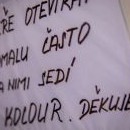 OTEVÍRAT
POMALU ČASTO
ZA NIMI SEDÍ
KOLOUR. DĚKUJE